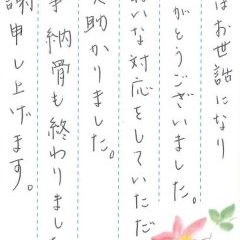 はお世話になり
がとうございました。
いな対応をしていただ
助かりました。
納骨も終わりまし
謝申し上げます。